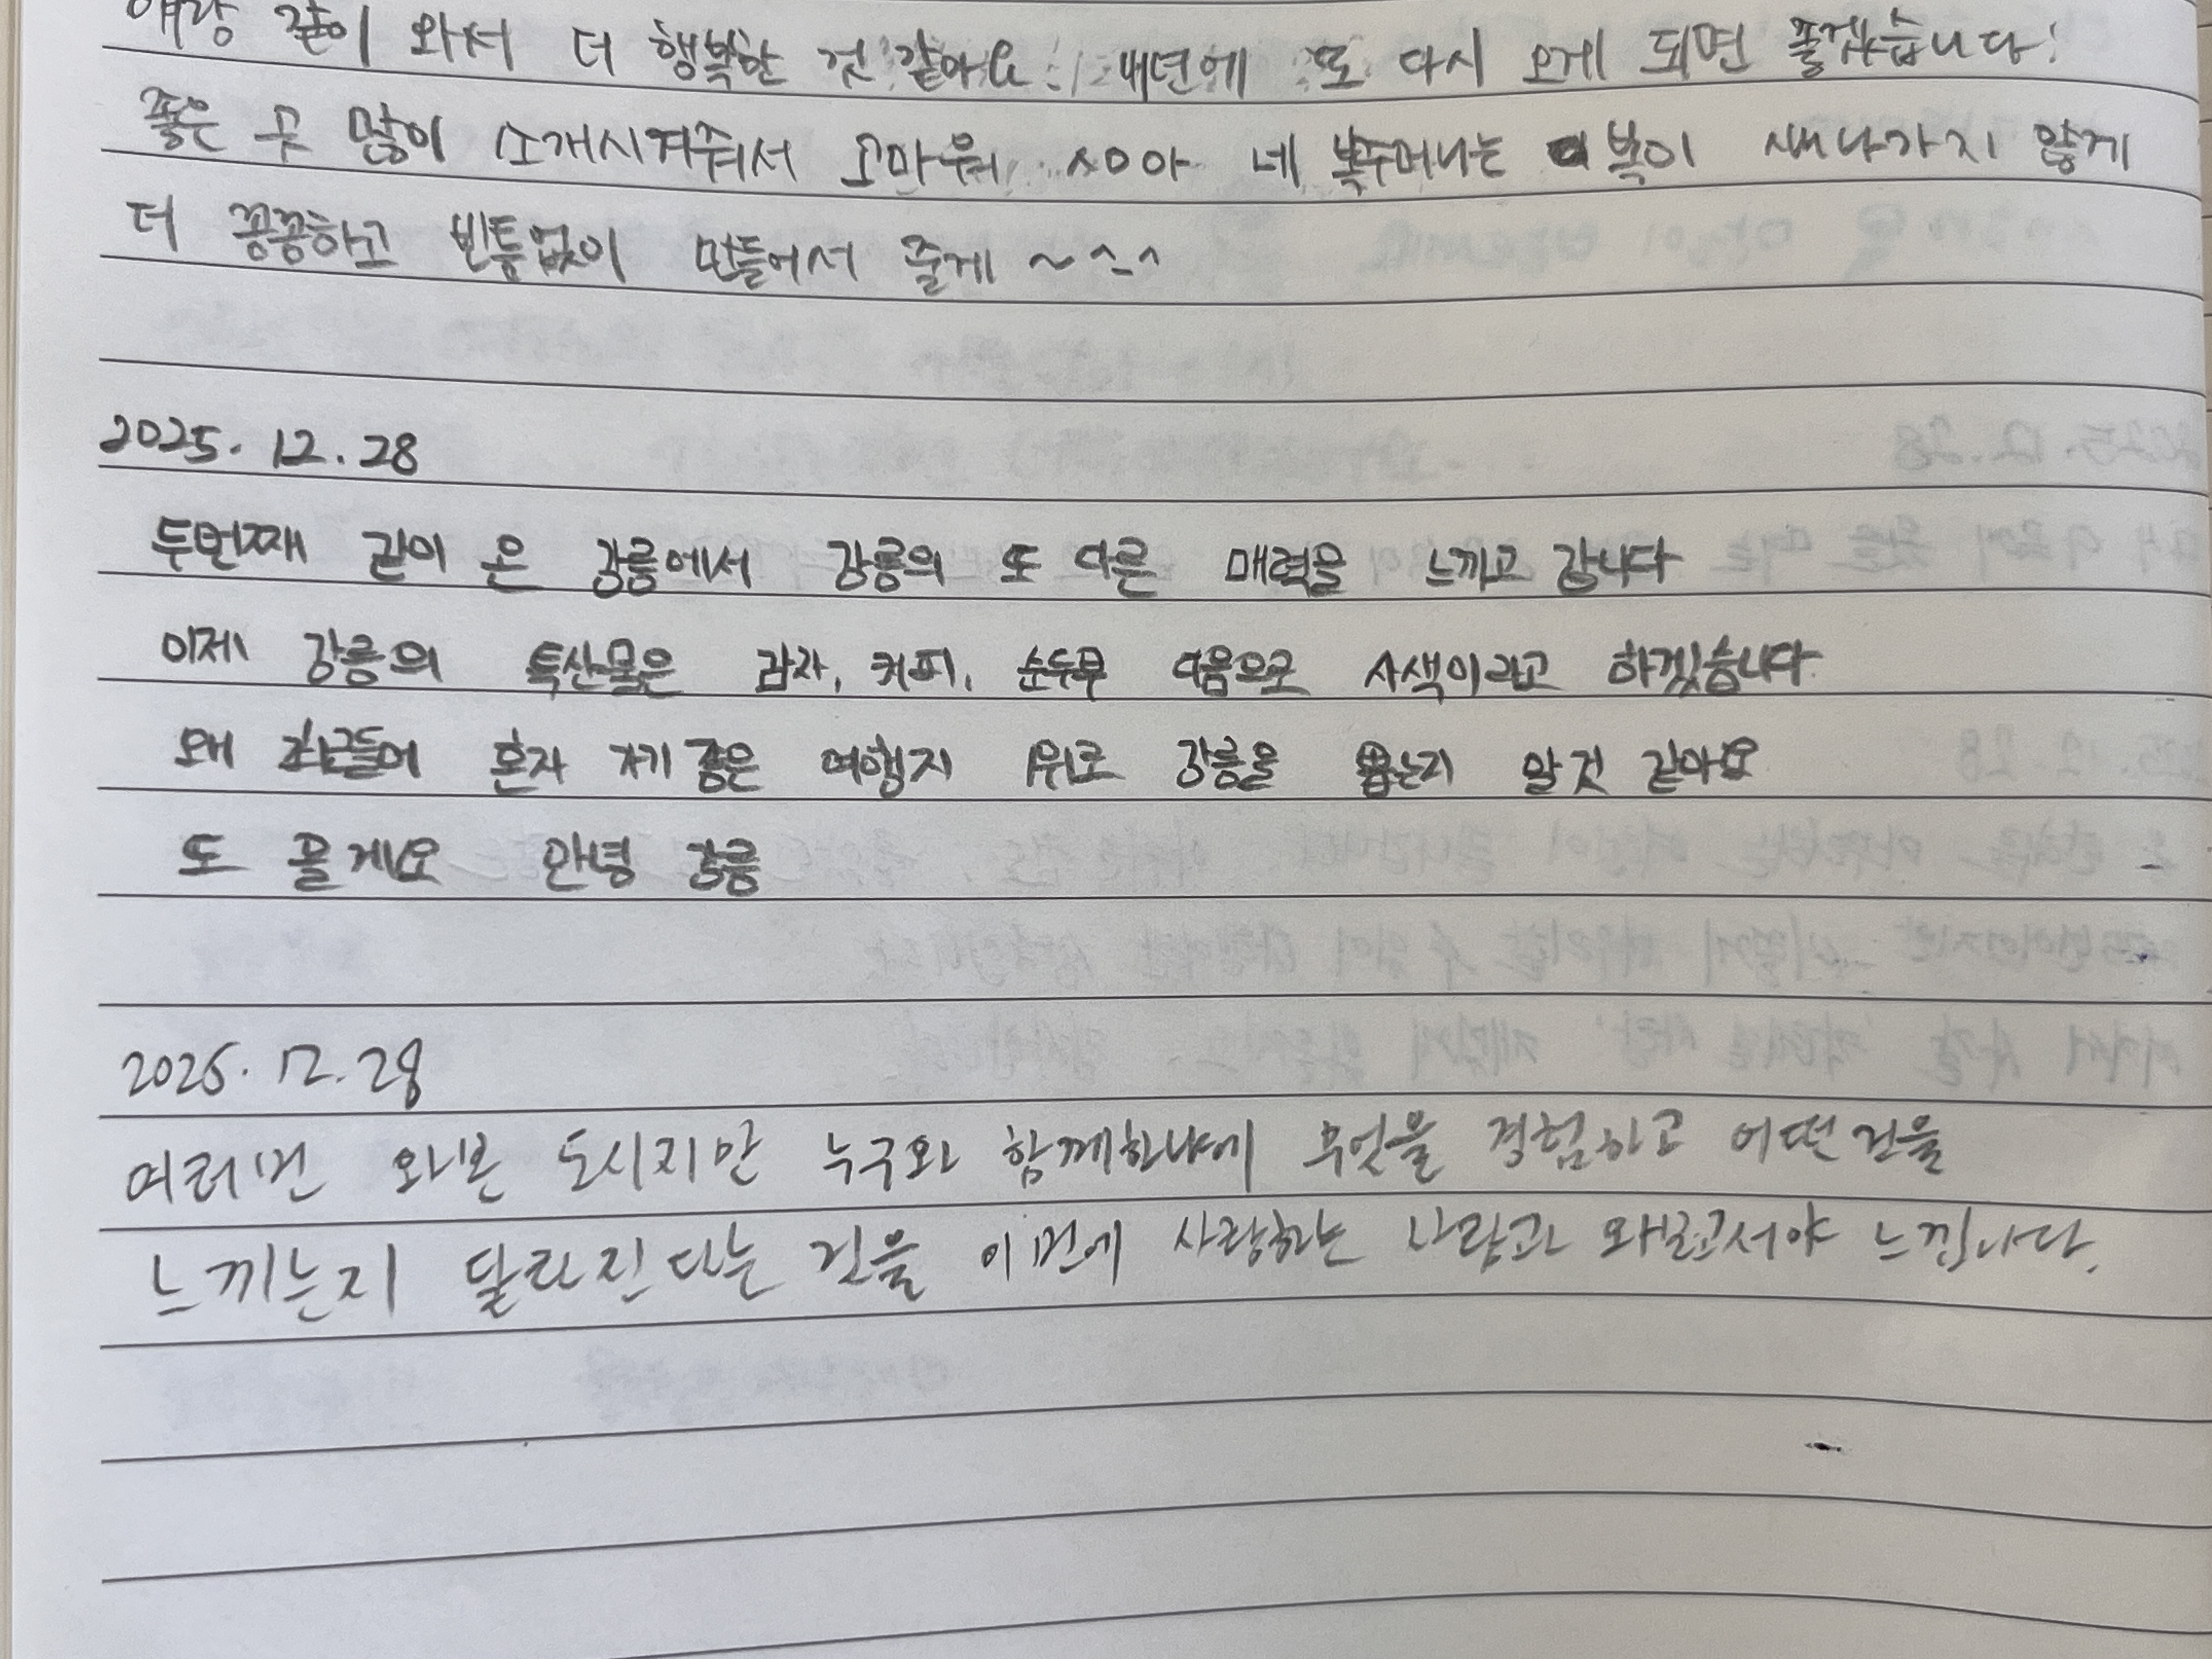 얘랑 같이 와서 더 행복한 것 같아요 내년에 또 다시 오게 되면 좋겠습니다!
좋은 곳 많이 소개시켜줘서 고마워 네 복주머니는 복이 새나가지 않게
더 꽁꽁하고 빈틈없이 만들어서 줄게 ~^-^
2025. 12. 28
두번째 같이 온 강릉에서 강릉의 또 다른 매력을 느끼고 갑니다
이제 강릉의 특산물은 감자, 커피, 순두부 다음으로 사색이라고 하겠습니다
왜 혼자 가기 좋은 여행지 1위로 강릉을 뽑는지 알것 같아요
또 올게요 안녕 강릉
2025. 12. 28
여러번 와본 도시지만 누구와 함께하냐에 무엇을 경험하고 어떤것을
느끼는지 달라진다는 것을 이번에 사랑하는 사람과 와보고서야 느낍니다.